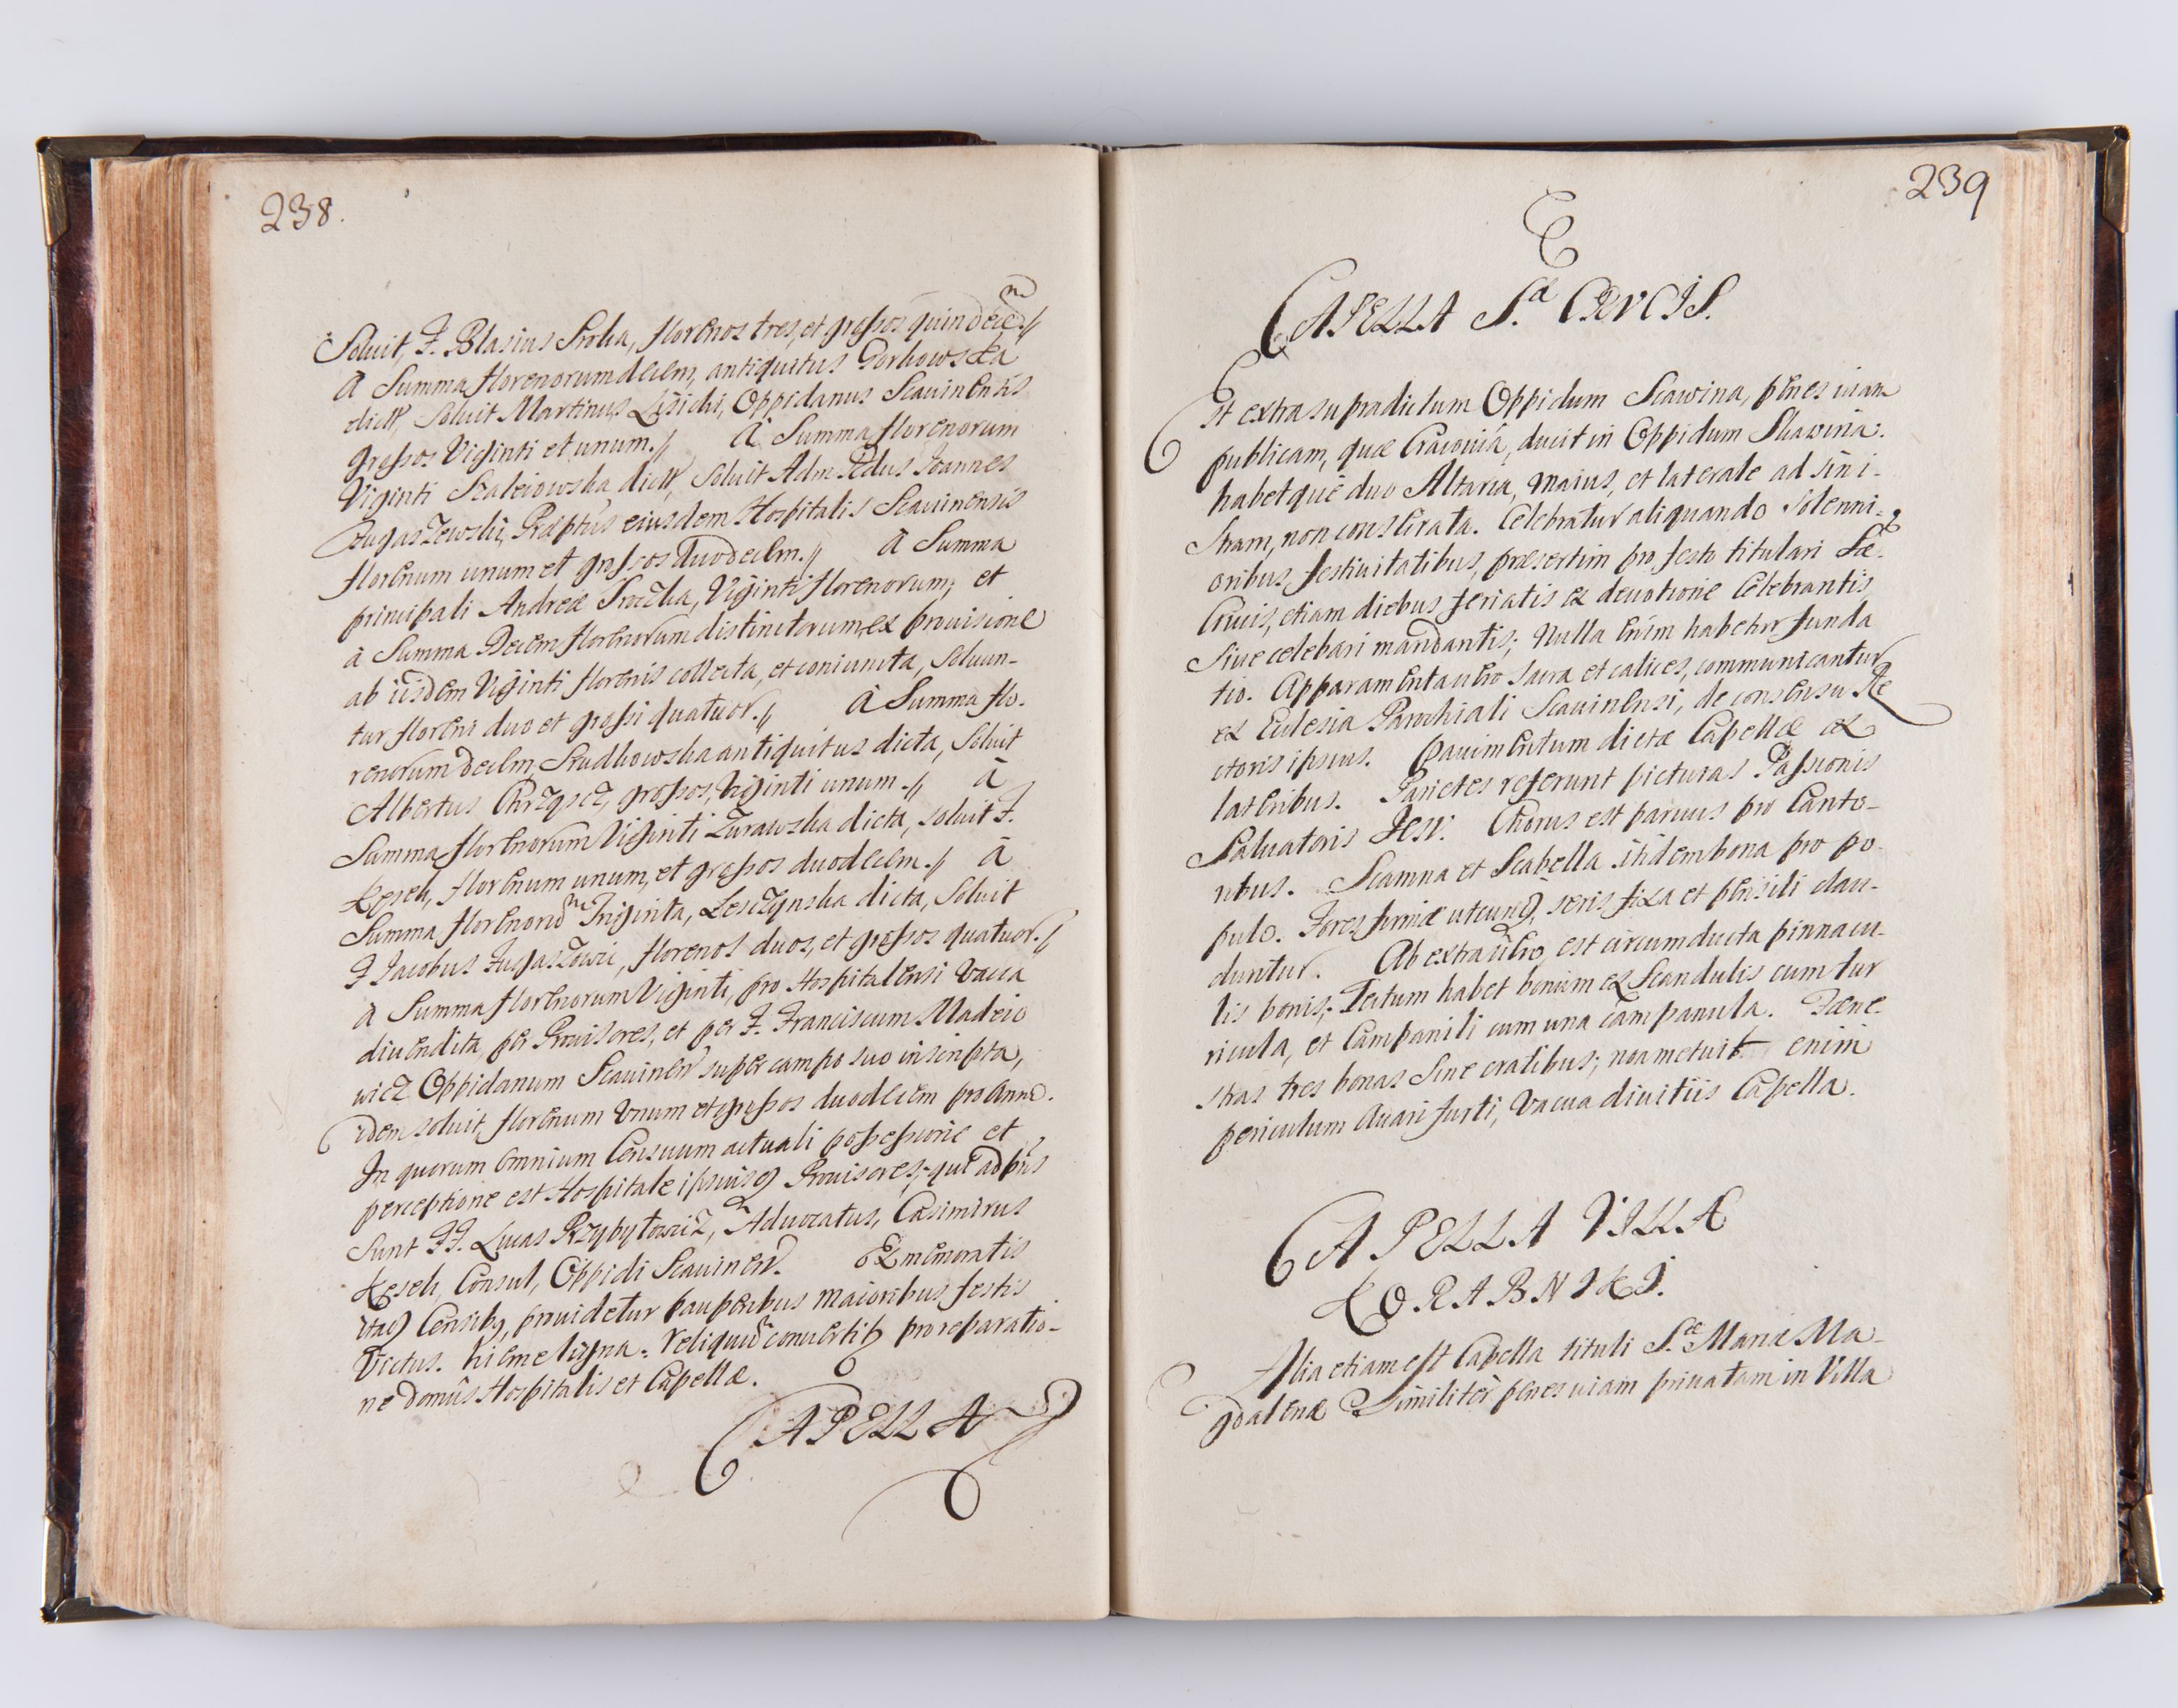 238.
Soluit, F. Blasius Sroka, florenos tres, et grossos quindecem //
A Summa florenorum decem, antiquitus Gorkowska
dict, soluit Martinus Lisicki, Oppidanus Scauinensis
grossos Viginti et unum. // A Summa florenorum
Viginti Szalciowska dict, soluit Adm Rdus Joannes
Præptus eiusdem Hospitalis Scauinensis
florenum unum et grossos duodecem. // A Summa
principali Andreæ Viginti florenorum, et
à Summa Decem florenorum distinctorum, ex prouisione
ab iisdem Viginti florenis collecta, et coniuncta, soluun-
tur floreni duo et grossi quatuor. // A Summa flo-
renorum decem, Studkowska antiquitus dicta, soluit
Albertus Chrząscz, grossos, Viginti unum. // à
Summa florenorum Viginti Zurawska dicta, soluit F.
Kęsek, florenum unum, et grossos duodecem. // à
Summa florenorum Triginta, Leszczynska dicta, soluit
F Jacobus florenos duos, et grossos quatuor. //
à Summa florenorum Viginti, pro Hospitalensi Vacca
diuendita, per Prouisores, et per F. Franciscum Madeio
wicz Oppidanum Scauinen super campo suo inscripta,
idem soluit, florenum Vnum et grossos duodecem pro Anno.
In quorum omnium Censuum actuali possessione et
perceptione est Hospitale ipsiusq Prouisores; qui ad pns
sunt FF. Lucas Przybyłowicz, Aduocatus, Casimirus
Kęsek, Consul, Oppidi Scauinen. Ex memoratis
itaq Censibq, prouidetur pauperibus maioribus festis
Victus. hieme ligna. reliquum conuertitq pro reparatio-
ne domûs Hospitalis et Capellæ.
CAPELLA
239
CAPELLA S.æ CRVCIS.
Est extra supradictum Oppidum Scawina, penes uiam
publicam, quæ Cracouiâ, ducit in Oppidum Skawina.
habetque duo Altaria, maius, et laterale ad sini-
stram, non consecrata. Celebratur aliquando solenni-
oribus festiuitatibus, præsertim pro festo titulari Sæ
Crucis, etiam diebus feriatis ex deuotione Celebrantis
siue celebari mandantis; Nulla enim habetur funda
tio. Apparamenta uero sacra et calices, communicantur
ex Ecclesia Parochiali Scauinensi, de consensu Re
ctoris ipsius. Pauimentum dictæ Capellæ ex
lateribus. Parietes referunt picturas Passionis
Saluatoris Jesu. Chorus est paruus pro Canto-
ribus. Scamna et Scabella itidem bona pro po-
pulo. Fores firmæ utcunq, seris fixa et pensili clau-
duntur. Ab extra uero est circumducta pinnacu-
lis bonis; Tectum habet bonum ex Scandulis cum tur
ricula, et Campanili cum una campanula. Fæne-
stras tres bonas sine cratibus; non metuit enim
periculum Auari furti, Vacua diuitiis Capella.
CAPELLA VILLÆ
KORABNIKI.
Alia etiam est Capella tituli S.æ Mariæ Ma-
gdalenæ similiter penes uiam priuatam in Villa